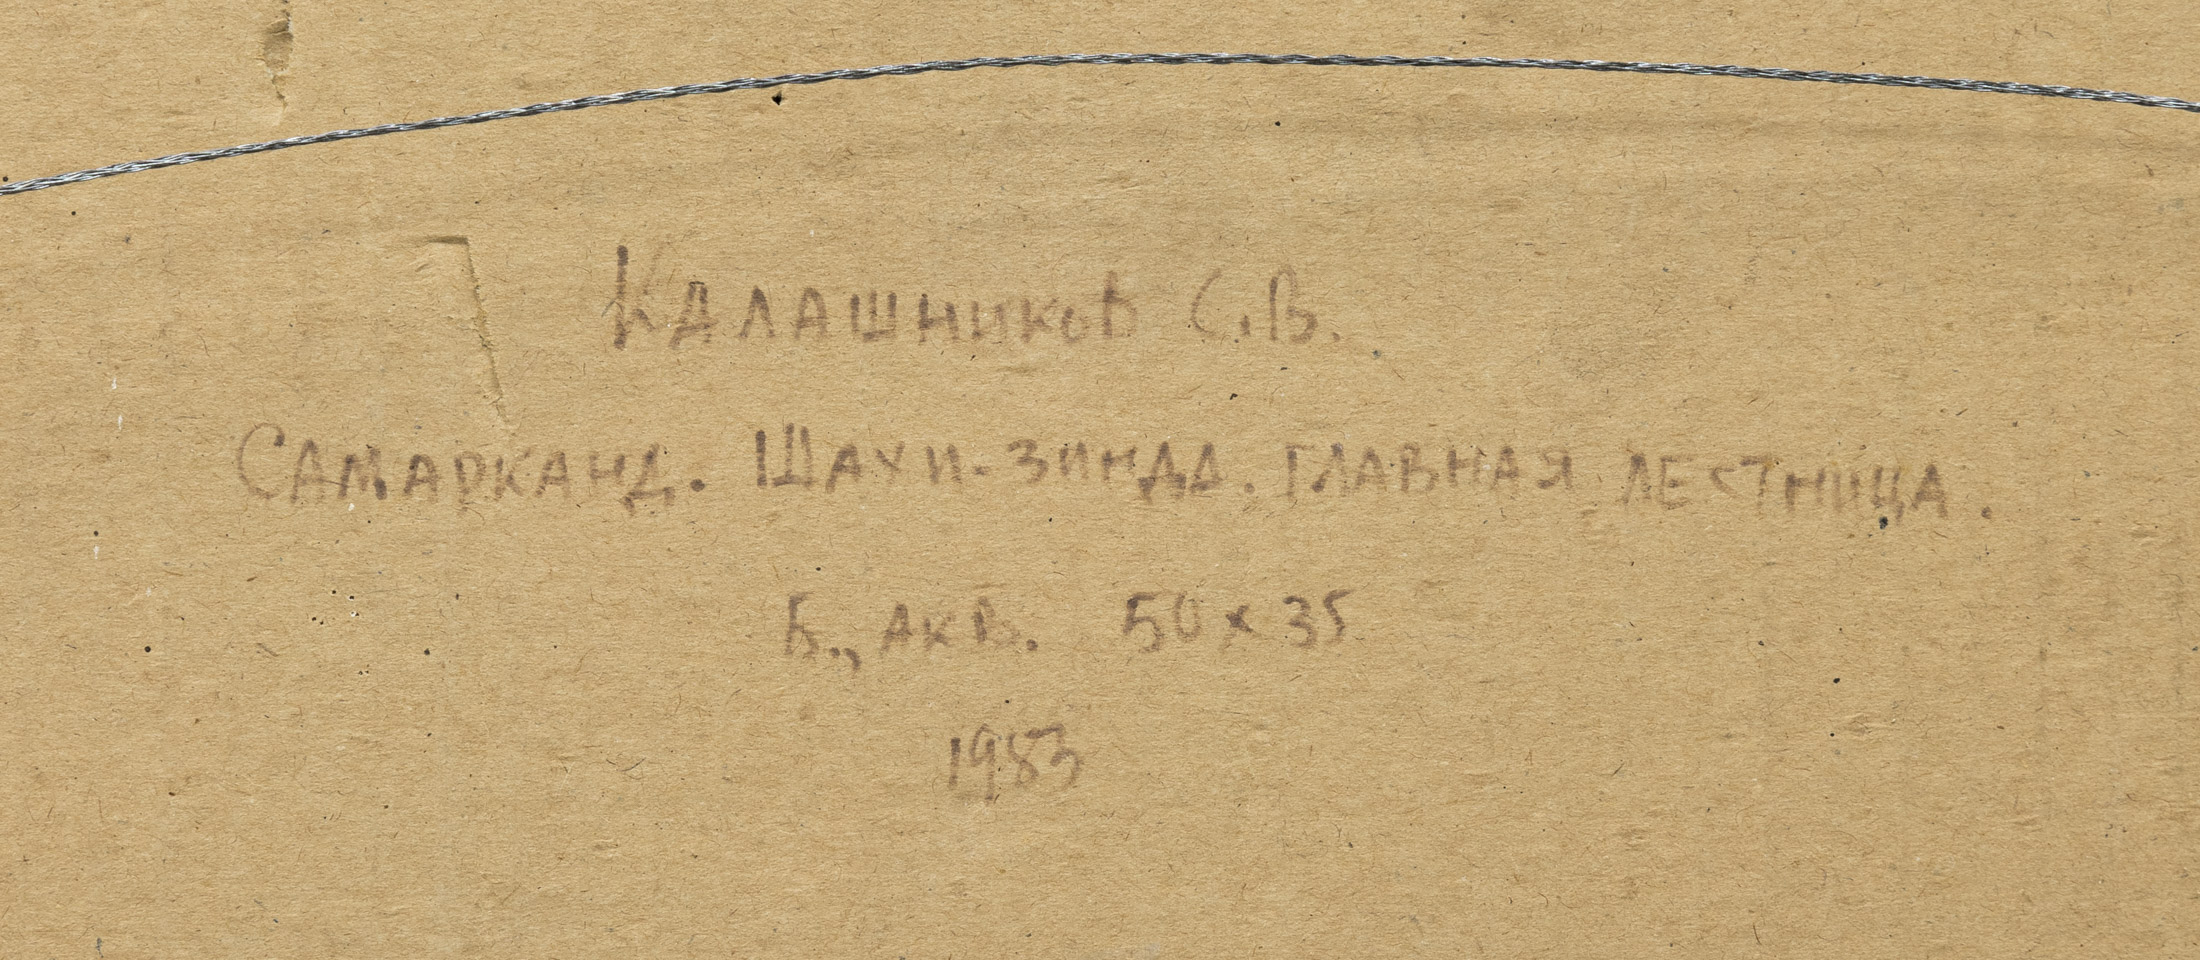 Калашников С.В.
Самарканд. Шахи-Зинда. Главная лестница.
Б., акв. 50 x 35
1983